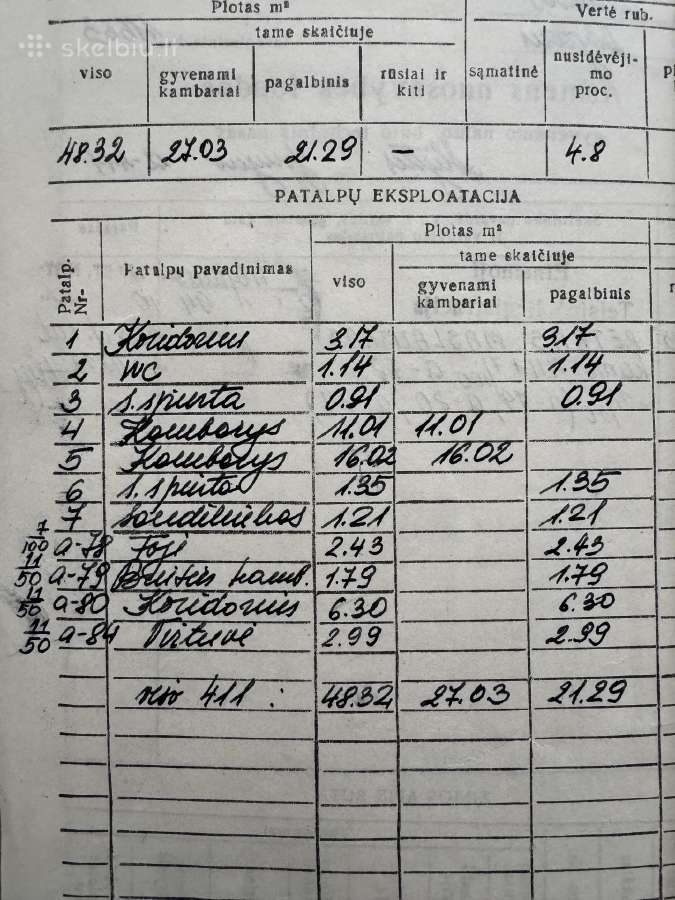 Plotas m² Vertė rub.
tame skaičiuje
skelbiu.lt
viso gyvenami kambariai pagalbinis rūsiai ir kiti sąmatinė nusidėvėji-mo proc.
48.32 27.03 21.29 — 4.8
PATALPŲ EKSPLOATACIJA
Plotas m²
tame skaičiuje
Patalp. Nr- Patalpų pavadinimas viso gyvenami kambariai pagalbinis
1 Koridorius 3.17 3.17
2 WC 1.14 1.14
3 s. spinta 0.91 0.91
4 Kambarys 11.01 11.01
5 Kambarys 16.02 16.02
6 s. spinta 1.35 1.35
7 Sandėliukas 1.21 1.21
7/100 a-78 Foje 2.43 2.43
11/50 a-79 Buities kamb. 1.79 1.79
11/50 a-80 Koridorius 6.30 6.30
11/50 a-84 Virtuvė 2.99 2.99
viso 411 : 48.32 27.03 21.29